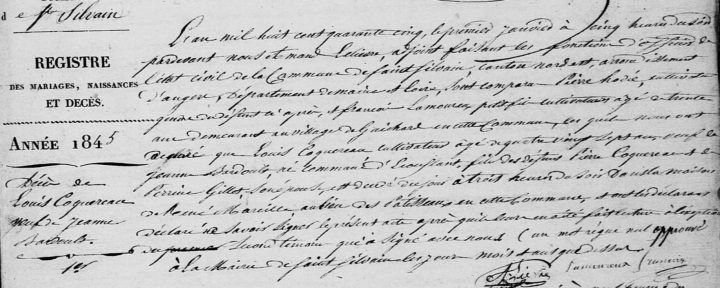 de St Silvain
REGISTRE
DES MARIAGES, NAISSANCES
ET DECÈS.
ANNÉE 1845
Décès de
Louis Coquereau
veuf de Jeanne
Bardoult.
1er
L'an mil huit cent quarante cinq, le premier janvier à cinq heures du soir
pardevant nous adjoint faisant les fonctions d'officier de
l'état civil de la Commune de Saint Silvain, canton nord est, arrondissement
d'angers, Département de maine et Loire, sont comparu Pierre hodé, cultivateur
gendre du défunt ci après, et francois Lamoureux, petit fils cultivateur agé de trente
ans demeurant au village de en cette Commune, les quels nous ont
déclaré que Louis Coquereau cultivateur agé de quatre vingt sept ans, veuf de
jeanne Bardoult, né commune d'Ecouflant, fils des defunts Pierre Coquereau et de
Perrine Gillot, son épouse, est décédé ce jour à trois heures du soir Dans la maison
de au lieu des en cette Commune, et ont les déclarants
déclaré ne Savoir Signer le présent acte après qu'il leur en a été fait lecture à l'exception
du Second temoin qui a Signé avec nous (un mot rayé nul approuvé
à La Mairie de Saint Silvain les jour mois et an que dessus.
Lamoureux francois